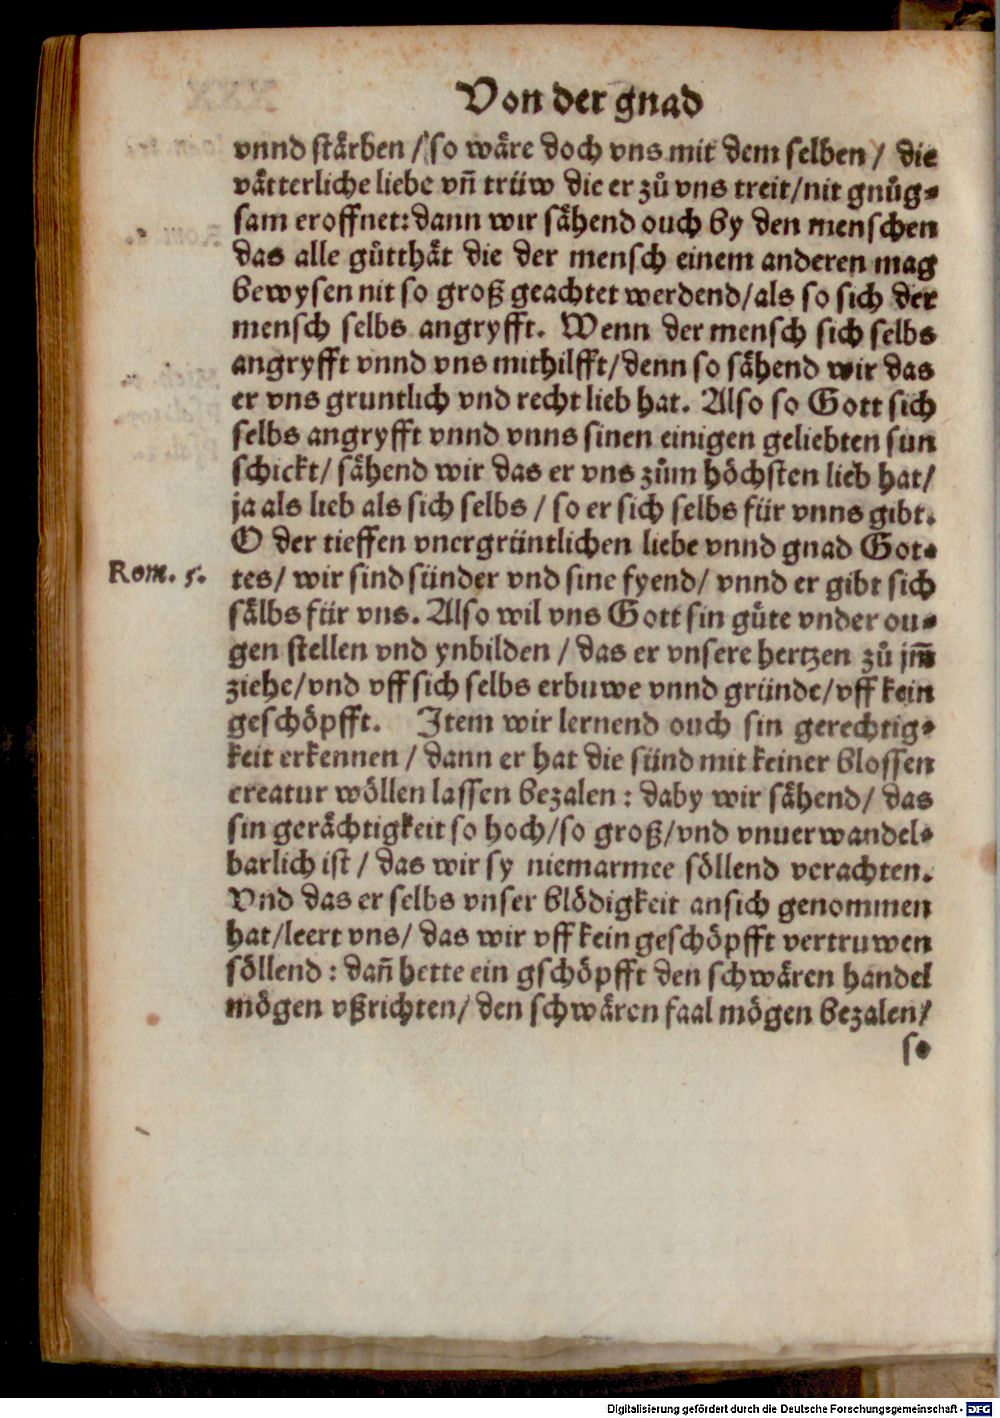 Von der gnad
vnnd stärben / so wäre doch vns mit dem selben / die
vätterliche liebe vñ trüw die er zů vns treit/nit gnůg-
sam eroffnet: dann wir sähend ouch by den menschen
das alle gůtthät die der mensch einem anderen mag
bewysen nit so groß geachtet werdend/als so sich der
mensch selbs angryfft. Wenn der mensch sich selbs
angryfft vnnd vns mithilfft/denn so sähend wir das
er vns gruntlich vnd recht lieb hat. Also so Gott sich
selbs angryfft vnnd vnns sinen einigen geliebten sun
schickt/ sähend wir das er vns zům höchsten lieb hat/
ja als lieb als sich selbs / so er sich selbs für vnns gibt.
O der tieffen vnergrüntlichen liebe vnnd gnad Got-
Rom. 5. tes/ wir sind sünder vnd sine fyend/ vnnd er gibt sich
sälbs für vns. Also wil vns Gott sin güte vnder ou-
gen stellen vnd ynbilden / das er vnsere hertzen zů jm̄
ziehe/vnd vff sich selbs erbuwe vnnd gründe/vff kein
geschöpfft. Item wir lernend ouch sin gerechtig-
keit erkennen / dann er hat die sünd mit keiner blossen
creatur wöllen lassen bezalen : daby wir sähend/ das
sin gerächtigkeit so hoch/so groß/vnd vnuerwandel-
barlich ist / das wir sy niemarmee söllend verachten.
Vnd das er selbs vnser blödigkeit ansich genommen
hat/leert vns/ das wir vff kein geschöpfft vertruwen
söllend : dañ hette ein gschöpfft den schwären handel
mögen vßrichten/ den schwären faal mögen bezalen/
so
Digitalisierung gefördert durch die Deutsche Forschungsgemeinschaft - DFG